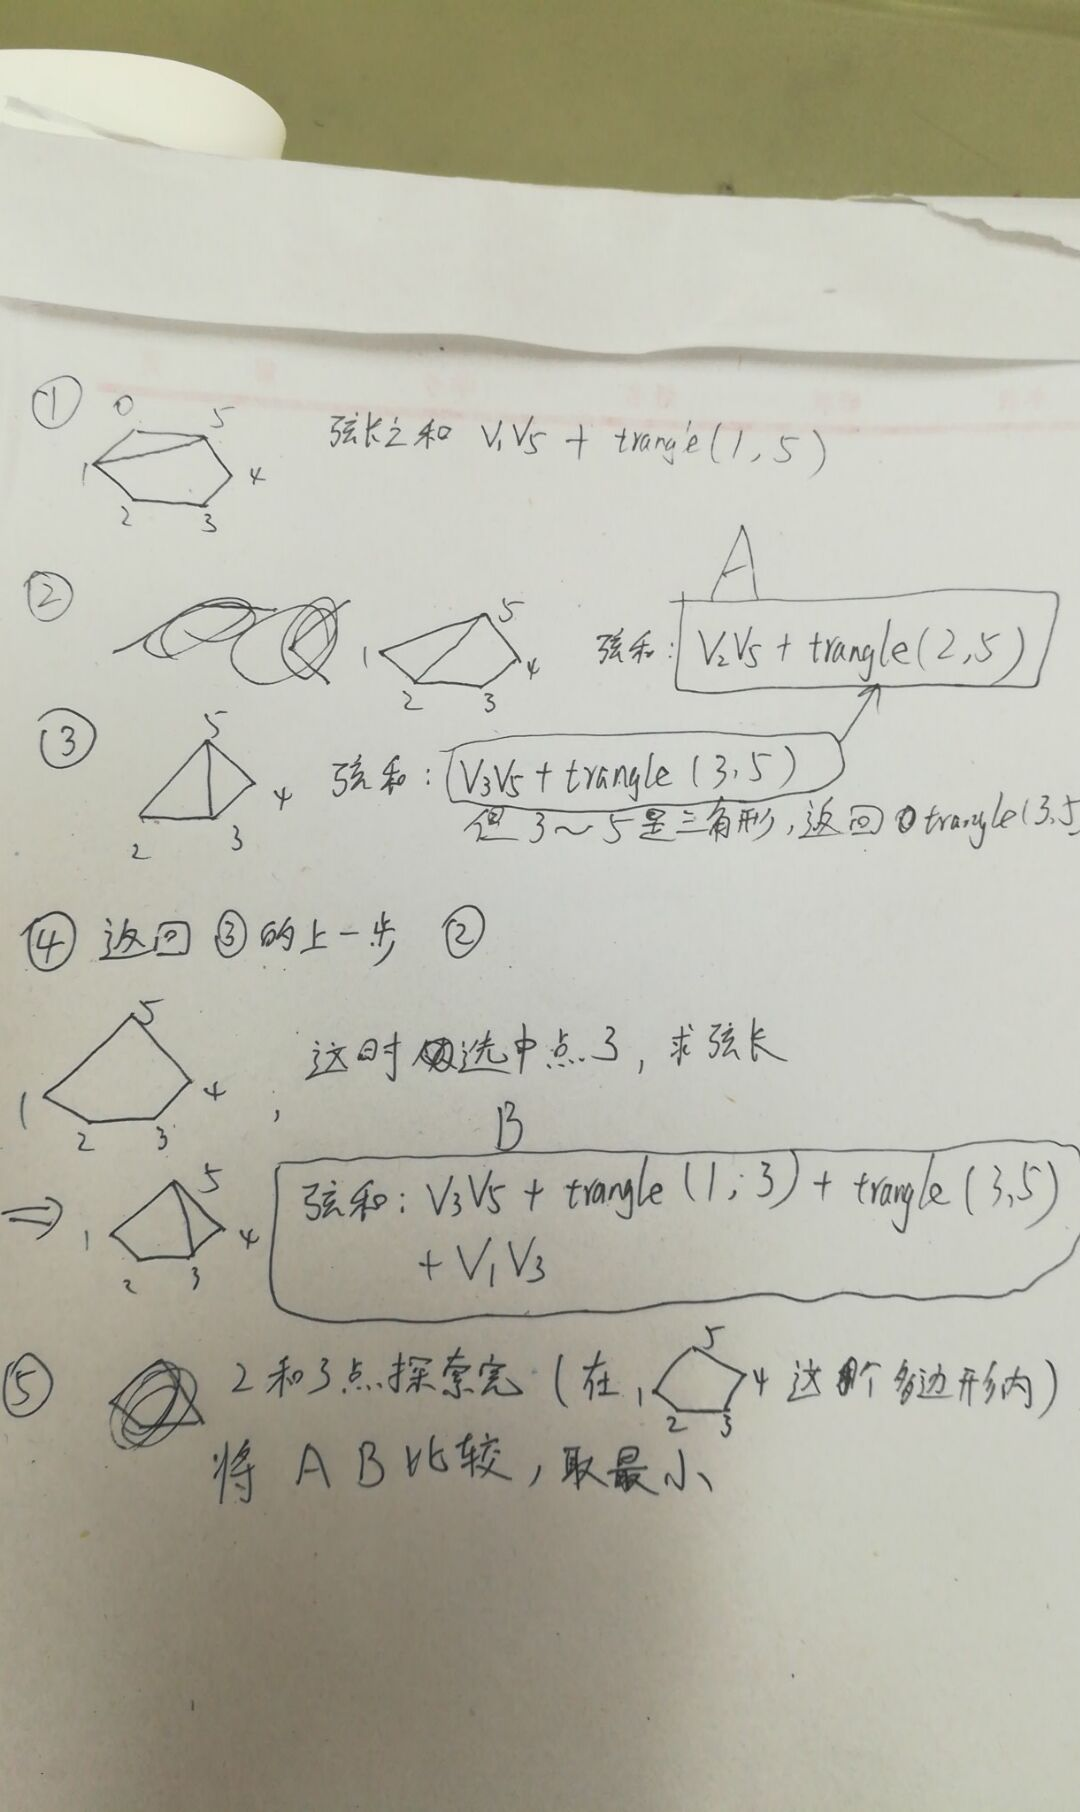 ① 0 5 弦长之和 V₁V₅ + trangle(1,5)
1 4
2 3
A
② 1 5 弦和: V₂V₅ + trangle(2,5)
2 3 4
③ 5 弦和: V₃V₅ + trangle(3,5)
2 3 4 但3~5是三角形,返回0 trangle(3,5
④ 返回③的上一步 ②
5
1 4 , 这时 选中点3, 求弦长
2 3
B
⇒ 1 5 4 弦和: V₃V₅ + trangle(1,3) + trangle(3,5)
2 3 + V₁V₃
⑤ 2和3点探索完 (在 1 5 4 这个多边形内)
2 3
将 A B 比较, 取最小